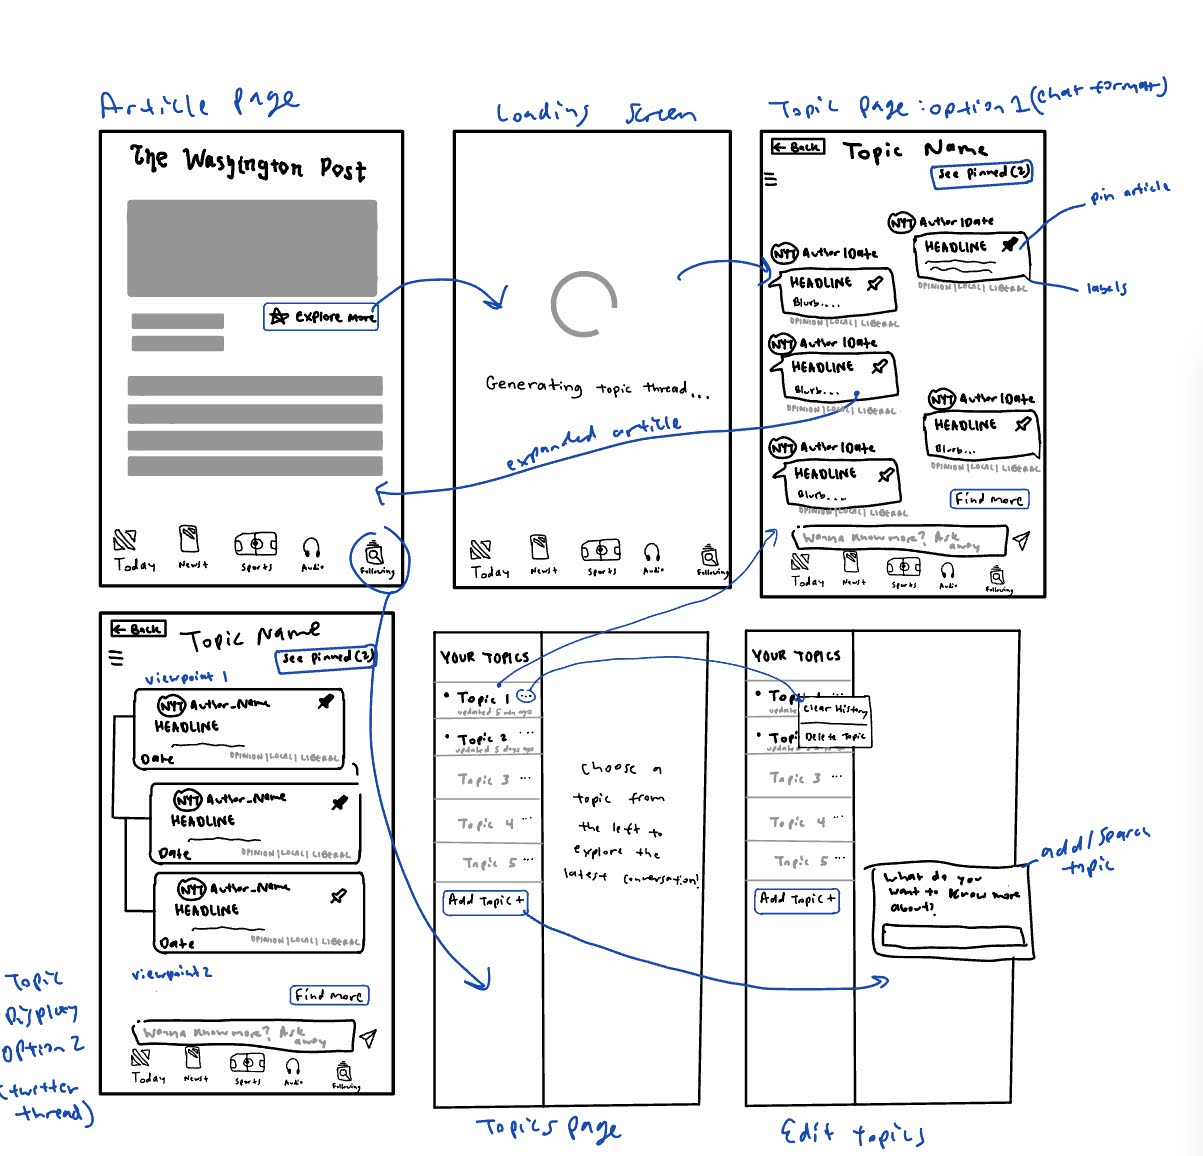 Article Page
The Washington Post
Explore More
Today
News+
Sports
Audio
Following
Loading Screen
Generating topic thread...
Today
News+
Sports
Audio
Following
Topic Page: option 1 (chat format)
← Back
Topic Name
See Pinned (2)
pin article
NYT Author | Date
HEADLINE
OPINION | LOCAL | LIBERAL
labels
NYT Author | Date
HEADLINE
Blurb....
OPINION | LOCAL | LIBERAL
NYT Author | Date
HEADLINE
Blurb...
OPINION | LOCAL | LIBERAL
expanded article
NYT Author | Date
HEADLINE
Blurb...
OPINION | LOCAL | LIBERAL
NYT Author | Date
HEADLINE
Blurb....
OPINION | LOCAL | LIBERAL
Find more
Wanna Know more? Ask
away
Today
News+
Sports
Audio
Following
← Back
Topic Name
See Pinned (2)
viewpoint 1
NYT Author_Name
HEADLINE
Date
OPINION | LOCAL | LIBERAL
NYT Author_Name
HEADLINE
Date
OPINION | LOCAL | LIBERAL
NYT Author_Name
HEADLINE
Date
OPINION | LOCAL | LIBERAL
viewpoint 2
Find more
Wanna Know more? Ask
away
Today
News+
Sports
Audio
Following
Topic
Display
option 2
(twitter
thread)
YOUR TOPICS
• Topic 1 ...
updated 5 min ago
• Topic 2 ...
updated 5 days ago
Topic 3 ...
Topic 4 ...
Topic 5 ...
Add Topic +
Choose a
topic from
the left to
explore the
latest conversation!
Topics page
YOUR TOPICS
• Top
update
Clear History
Delete Topic
• Topi
updated
Topic 3 ...
Topic 4 ...
Topic 5 ...
Add Topic +
What do you
want to know more
about?
add/search
topic
Edit topics